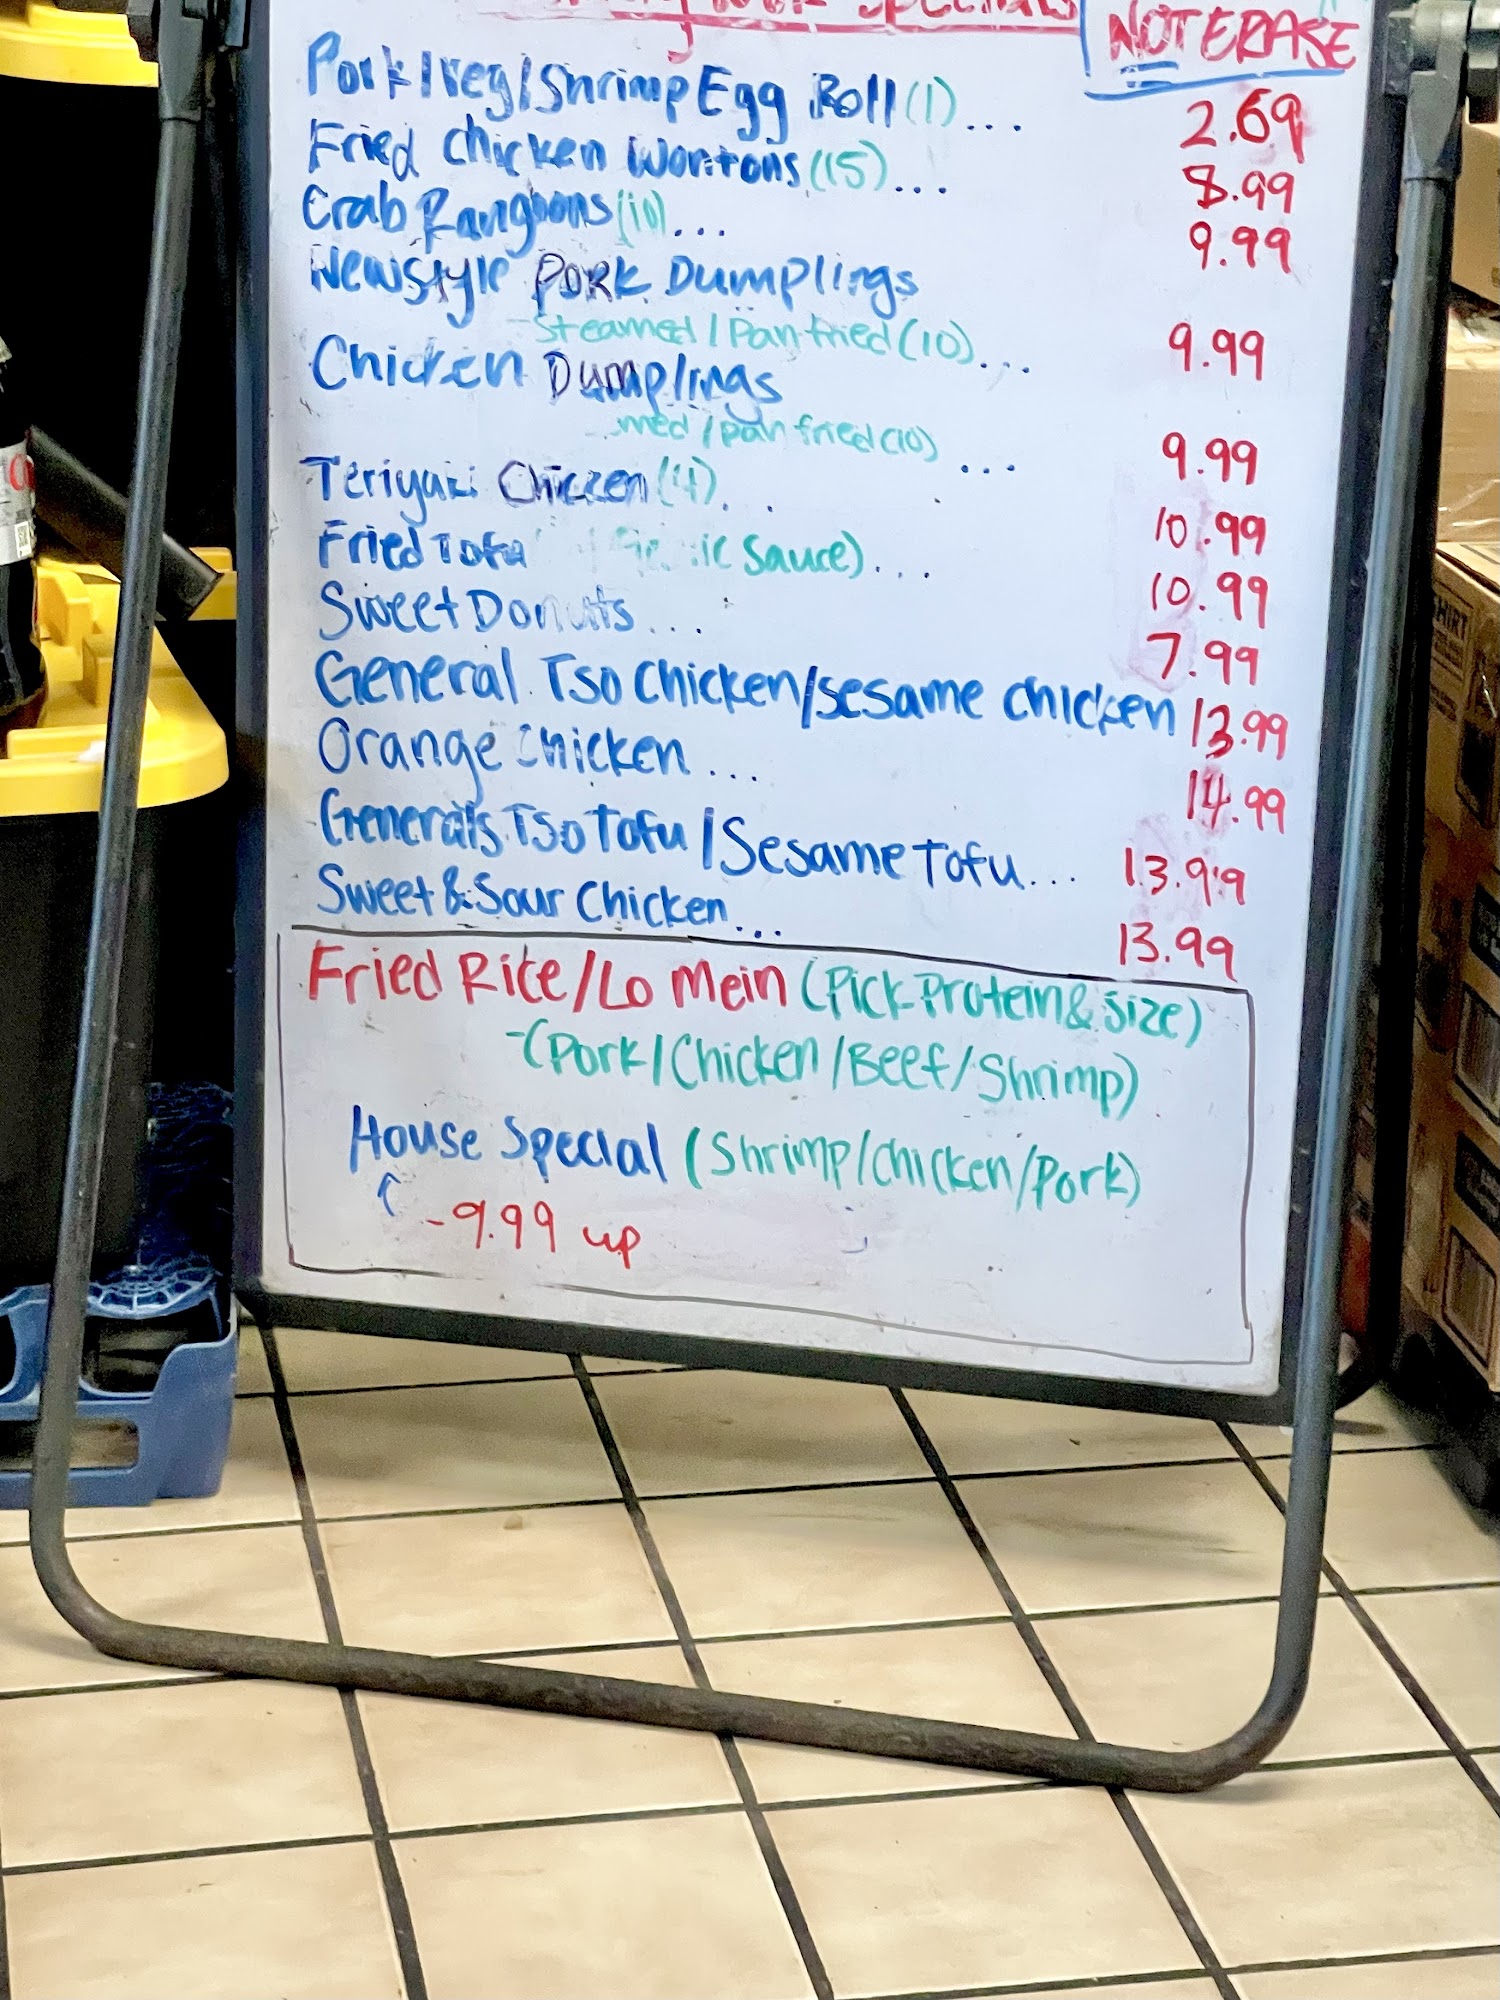 Specials
NOT ERASE
Pork/Veg/Shrimp Egg Roll (1)... 2.69
Fried Chicken Wontons (15)... 8.99
Crab Rangoons (10)... 9.99
New Style Pork Dumplings
-Steamed/Pan fried (10)... 9.99
Chicken Dumplings
med/pan fried (10) ... 9.99
Teriyaki Chicken (4)... 10.99
Fried Tofu Sauce)... 10.99
Sweet Donuts... 7.99
General Tso Chicken/sesame chicken 13.99
Orange Chicken... 14.99
Generals Tso Tofu/Sesame Tofu... 13.99
Sweet & Sour Chicken... 13.99
Fried Rice/Lo Mein (Pick Protein & Size)
-(Pork/Chicken/Beef/Shrimp)
House Special (Shrimp/Chicken/Pork)
-9.99 up